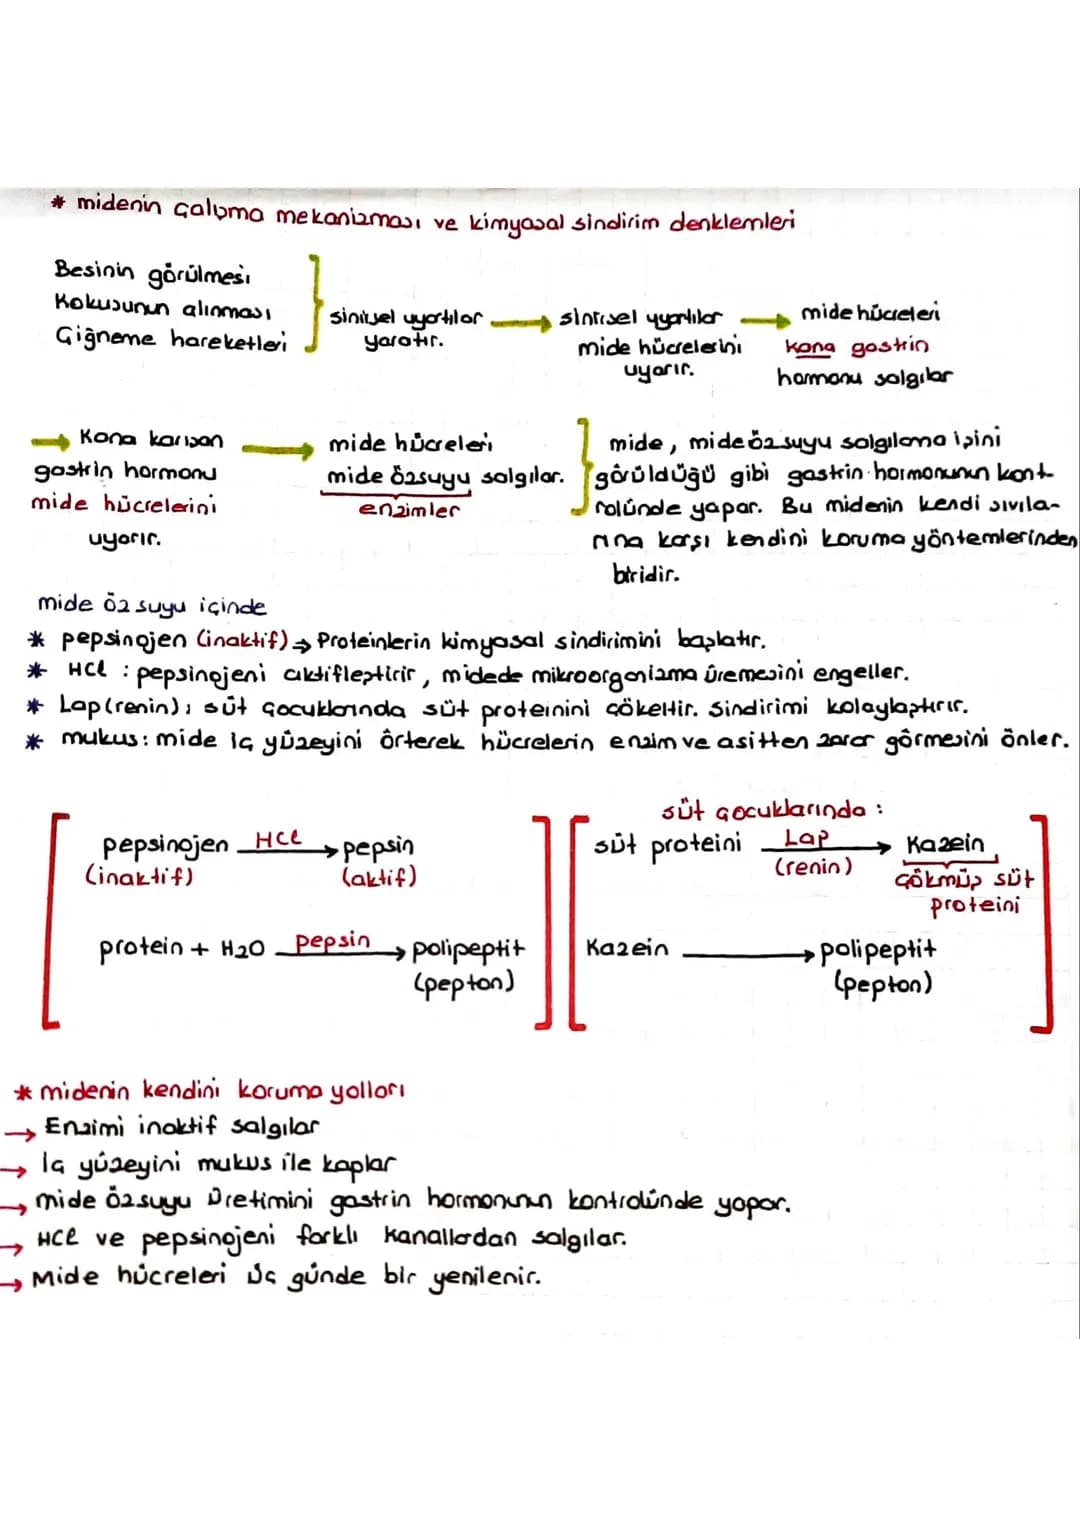 * midenin çalışma mekanizması ve kimyasal sindirim denklemleri
Besinin görülmesi
Kokusunun alınması
Çiğneme hareketleri
sinirsel uyartılar
yaratır.
sinirsel uyartılar
mide hücrelerini
uyarır.
mide hücreleri
kana gastrin
hormonu salgılar
Kana karışan
gastrin hormonu
mide hücrelerini
uyarır.
mide hücreleri
mide özsuyu salgılar.
enzimler
mide, mide özsuyu salgılama işini
görüldüğü gibi gastrin hormonunun kont-
rolünde yapar. Bu midenin kendi sıvıla-
rına karşı kendini koruma yöntemlerinden
biridir.
mide öz suyu içinde
* pepsinojen (inaktif) → Proteinlerin kimyasal sindirimini başlatır.
* HCl : pepsinojeni aktifleştirir, midede mikroorganizma üremesini engeller.
* Lap(renin); süt çocuklarında süt proteinini çökeltir. Sindirimi kolaylaştırır.
* mukus: mide iç yüzeyini örterek hücrelerin enzim ve asitten zarar görmesini önler.
pepsinojen HCl → pepsin
(inaktif) (aktif)
protein + H2O pepsin → polipeptit
(pepton)
süt çocuklarında :
süt proteini Lap → Kazein
(renin) çökmüş süt
proteini
Kazein → polipeptit
(pepton)
* midenin kendini koruma yolları
→ Enzimi inaktif salgılar
→ İç yüzeyini mukus ile kaplar
→ mide özsuyu üretimini gastrin hormonunun kontrolünde yapar.
→ HCl ve pepsinojeni farklı kanallardan salgılar.
→ Mide hücreleri üç günde bir yenilenir.